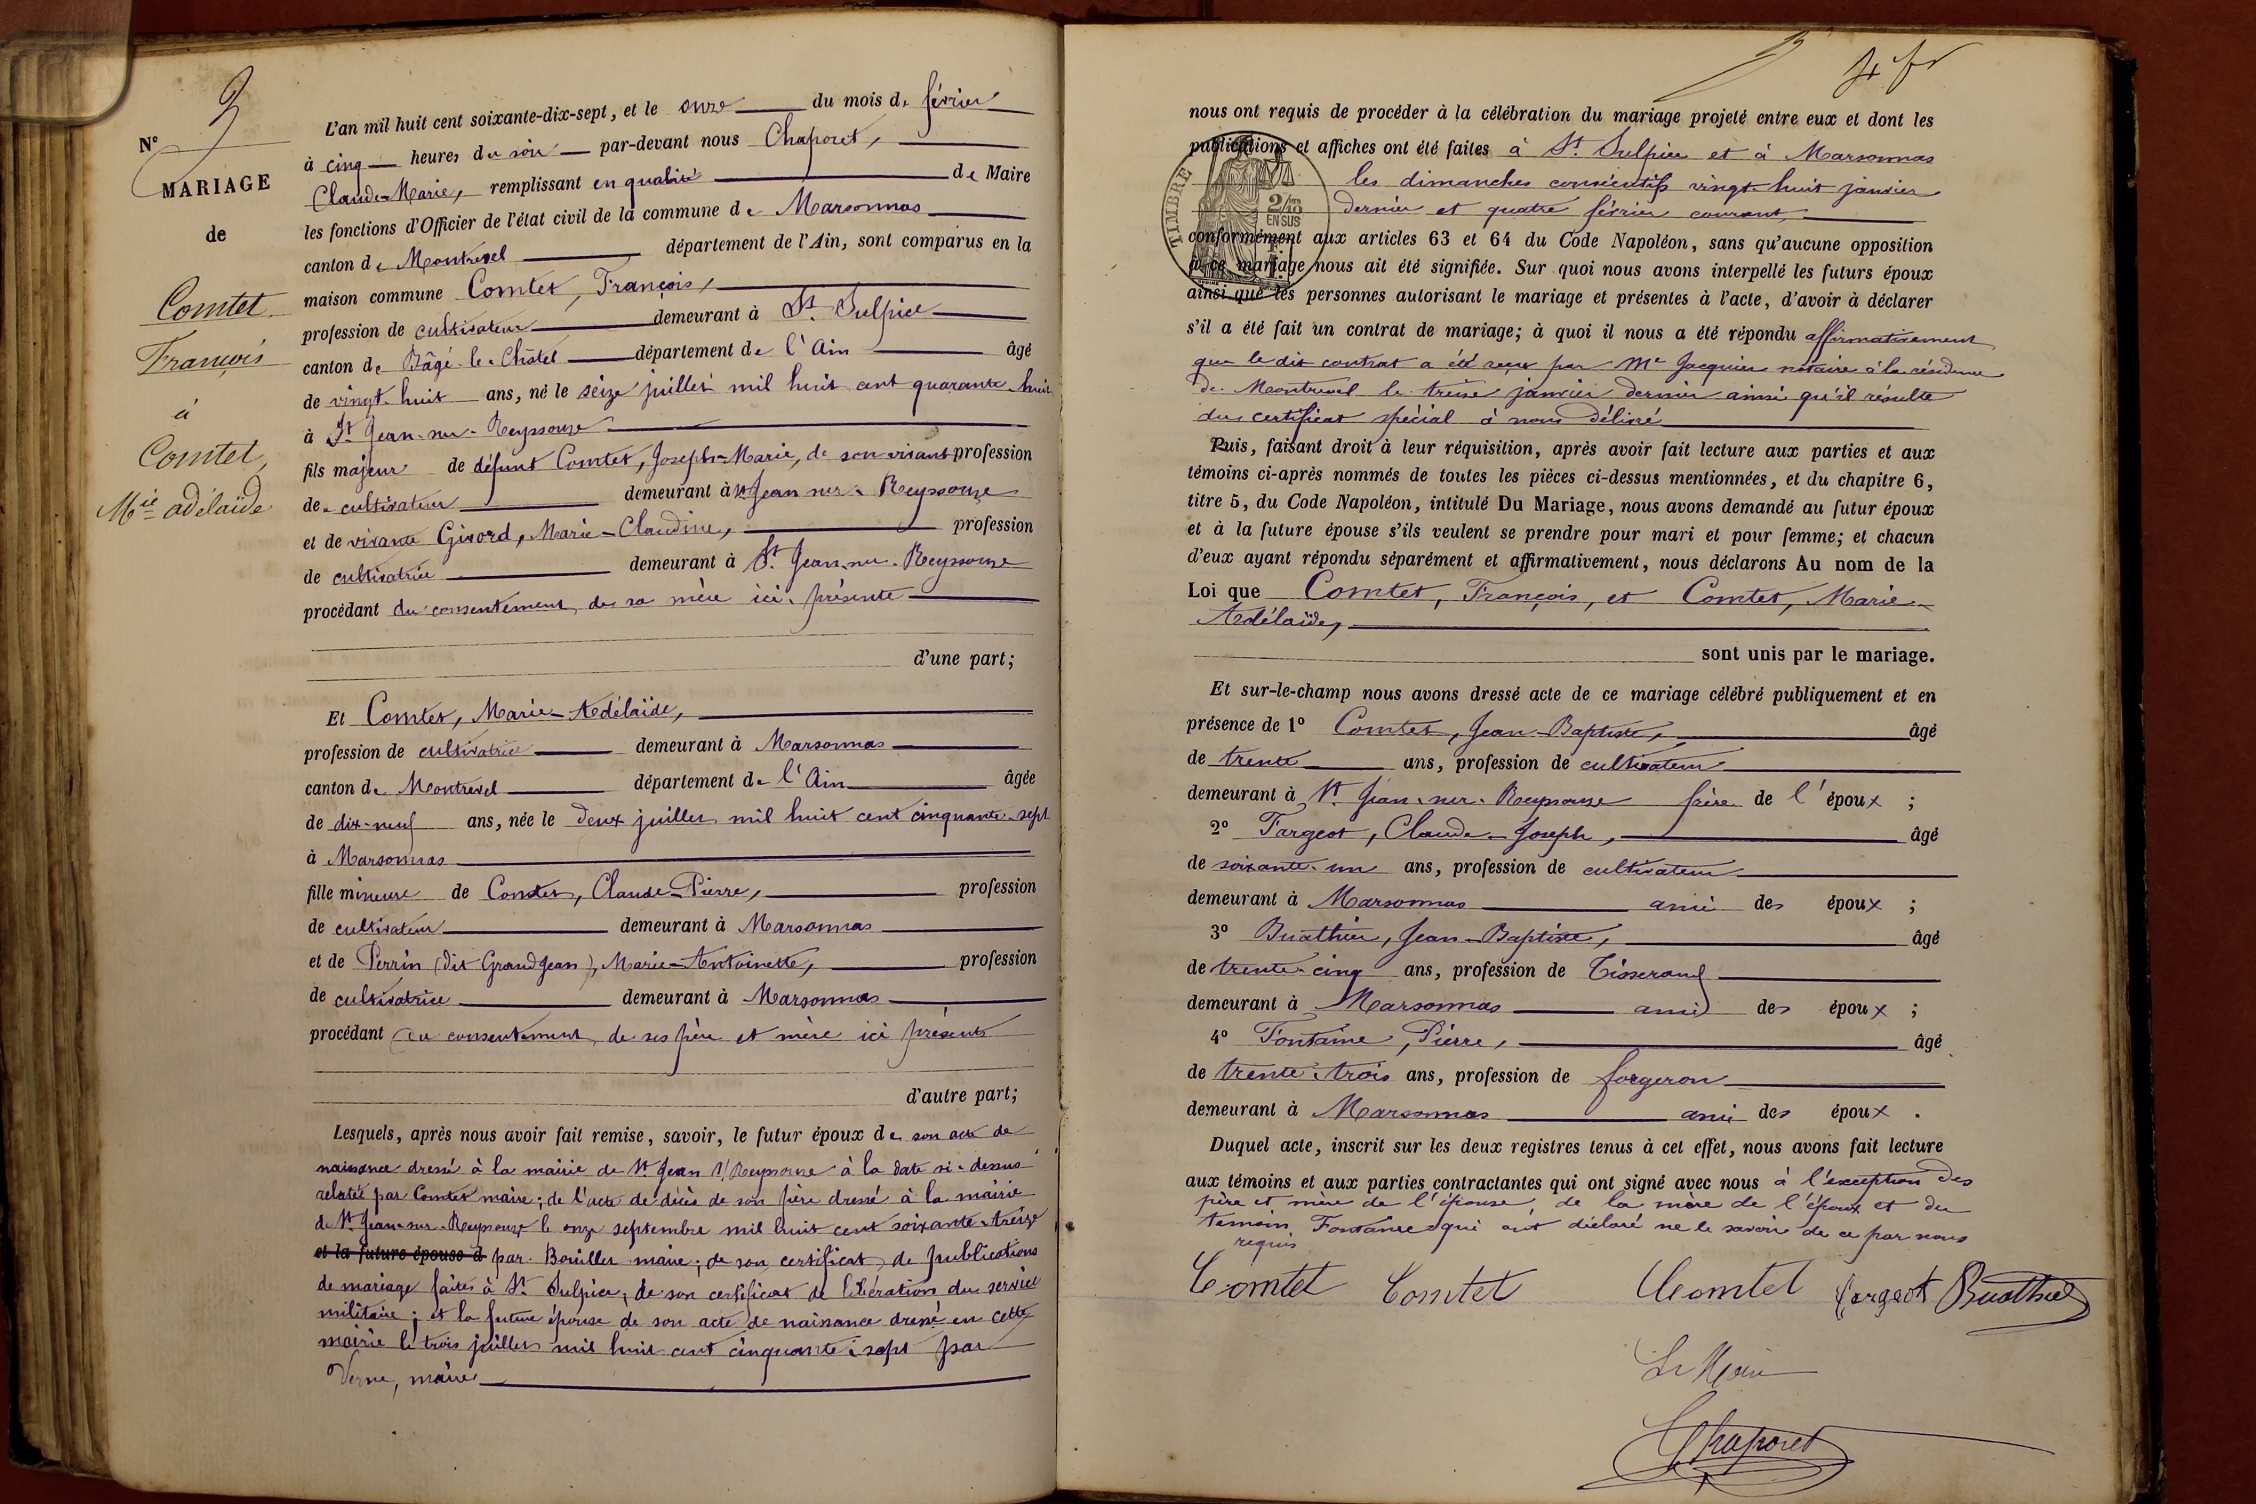 3
N°
MARIAGE
de
Comtet
François
à
Comtet,
Mie adélaïde
L'an mil huit cent soixante-dix-sept, et le onze du mois de février
à cinq heures du soir par-devant nous Chaporet,
Claude-Marie, remplissant en qualité de Maire
les fonctions d'Officier de l'état civil de la commune de Marsonnas
canton de Montrevel département de l'Ain, sont comparus en la
maison commune Comtet, François,
profession de cultivateur demeurant à St. Sulpice
canton de Bâgé-le-Châtel département de l'Ain âgé
de vingt-huit ans, né le seize juillet mil huit cent quarante-huit
à St Jean-sur-Reyssouze
fils majeur de défunt Comtet, Joseph-Marie, de son vivant profession
de cultivateur demeurant à St Jean sur-Reyssouze
et de vivante Girord, Marie-Claudine, profession
de cultivatrice demeurant à St. Jean-sur-Reyssouze
procédant du consentement de sa mère ici présente
d'une part;
Et Comtet, Marie-Adélaïde,
profession de cultivatrice demeurant à Marsonnas
canton de Montrevel département de l'Ain âgée
de dix-neuf ans, née le deux juillet mil huit cent cinquante-sept
à Marsonnas
fille mineure de Comtet, Claude-Pierre, profession
de cultivateur demeurant à Marsonnas
et de Perrin (dit Grandjean), Marie-Antoinette, profession
de cultivatrice demeurant à Marsonnas
procédant du consentement de ses père et mère ici présents
d'autre part;
Lesquels, après nous avoir fait remise, savoir, le futur époux de son acte de
naissance dressé à la mairie de St Jean s/Reyssouze à la date si-dessus
relatée par Comtet maire; de l'acte de décès de son père dressé à la mairie
de St Jean-sur-Reyssouze le onze septembre mil huit cent soixante-treize
et la future épouse d par Bouiller maire; de son certificat de publications
de mariage faites à St Sulpice, de son certificat de libération du service
militaire; et la future épouse de son acte de naissance dressé en cette
mairie le trois juillet mil huit cent cinquante-sept par
Verne, maire
nous ont requis de procéder à la célébration du mariage projeté entre eux et dont les
publications et affiches ont été faites à St. Sulpice et à Marsonnas
les dimanches consécutifs vingt-huit janvier
dernier et quatre février courant,
TIMBRE
2/10
EN SUS
conformément aux articles 63 et 64 du Code Napoléon, sans qu'aucune opposition
à ce mariage nous ait été signifiée. Sur quoi nous avons interpellé les futurs époux
ainsi que les personnes autorisant le mariage et présentes à l'acte, d'avoir à déclarer
s'il a été fait un contrat de mariage; à quoi il nous a été répondu affirmativement
que le dit contrat a été reçu par Me Jacquier notaire à la résidence
de Montrevel le treize janvier dernier ainsi qu'il résulte
du certificat spécial à nous délivré
Puis, faisant droit à leur réquisition, après avoir fait lecture aux parties et aux
témoins ci-après nommés de toutes les pièces ci-dessus mentionnées, et du chapitre 6,
titre 5, du Code Napoléon, intitulé Du Mariage, nous avons demandé au futur époux
et à la future épouse s'ils veulent se prendre pour mari et pour femme; et chacun
d'eux ayant répondu séparément et affirmativement, nous déclarons Au nom de la
Loi que Comtet, François, et Comtet, Marie-
Adélaïde,
sont unis par le mariage.
Et sur-le-champ nous avons dressé acte de ce mariage célébré publiquement et en
présence de 1° Comtet, Jean-Baptiste, âgé
de trente ans, profession de cultivateur
demeurant à St. Jean-sur-Reyssouze frère de l'époux;
2° Fargeot, Claude-Joseph, âgé
de soixante-un ans, profession de cultivateur
demeurant à Marsonnas ami des époux;
3° Buathier, Jean-Baptiste, âgé
de trente-cinq ans, profession de Tisserand
demeurant à Marsonnas ami des époux;
4° Fontaine, Pierre, âgé
de trente-trois ans, profession de forgeron
demeurant à Marsonnas ami des époux.
Duquel acte, inscrit sur les deux registres tenus à cet effet, nous avons fait lecture
aux témoins et aux parties contractantes qui ont signé avec nous à l'exception des
père et mère de l'épouse, de la mère de l'époux et du
témoin Fontaine qui ont déclaré ne le savoir de ce par nous
requis
Comtet Comtet Comtet Fargeot Buathier
Le Maire
Chaporet